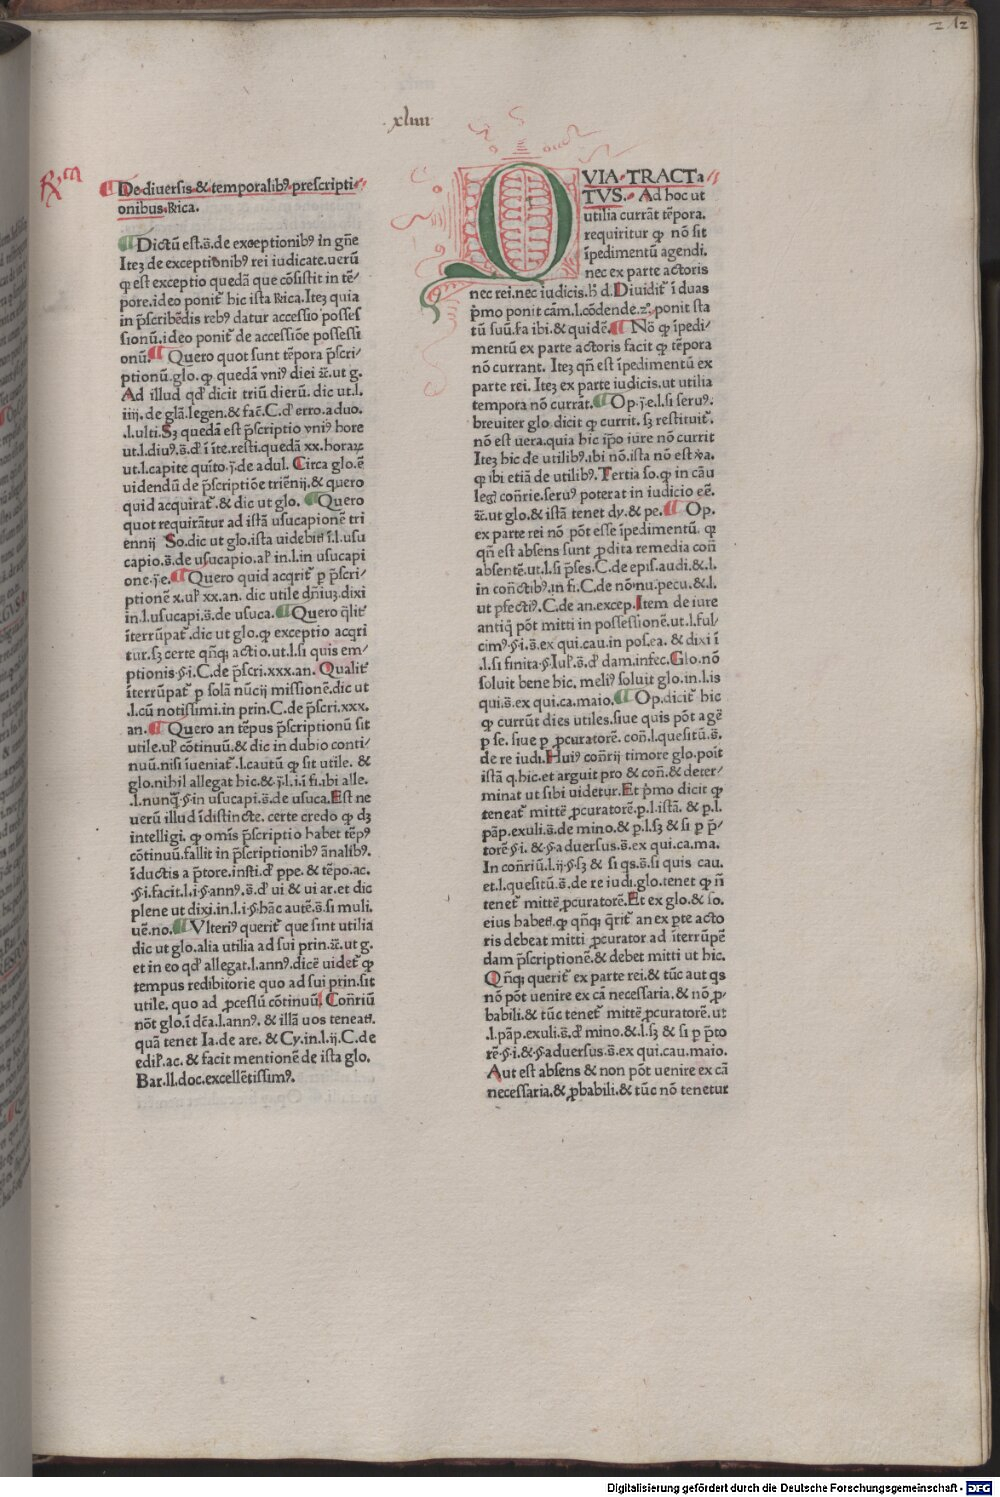 xliiii
Rca
De diuersis & temporalibꝰ prescripti
onibus Rica.
Dictū est.s̄.de exceptionibꝰ in gn̄e
Itez de exceptionibꝰ rei iudicate.uerū
ꝙ est exceptio quedā que cōsistit in tē/
pore.ideo ponit᷑ hic ista Rica.Itez quia
in p̄scribēdis rebꝰ datur accessio posses
sionū.ideo ponit᷑ de accessiōe possessi
onū. Quero quot sunt tēpora p̄scri/
ptionū.glo.ꝙ quedā vniꝰ diei &c̄.ut g.
Ad illud qd᷑ dicit triū dierū. dic ut.l.
iiij.de glā.legen.& fac̄.C.d᷑ erro.aduo.
.l.ulti.Sꝫ quedā est p̄scriptio vniꝰ hore
ut.l.diuꝰ.s̄.d᷑ ī īte.resti.quedā xx.horaꝝ
ut.l.capite quīto.j̄.de adul. Circa glo.ē
uidendū de p̄scriptiōe triēnij.& quero
quid acquirat᷑.& dic ut glo. Quero
quot requirātur ad istā usucapionē tri
ennij So.dic ut glo.ista uidebit᷑ ī.l.usu
capio.s̄.de usucapio.al᷑ in.l.in usucapi
one.j̄.e. Quero quid acqrit᷑ p p̄scri/
ptionē x.ul᷑ xx.an. dic utile dn̄iuꝫ.dixi
in.l.usucapi.s̄.de usuca. Quero q̄lit᷑
īterrūpat᷑.dic ut glo.ꝙ exceptio acqri
tur.sꝫ certe qn̄qꝫ actio.ut.l.si quis em/
ptionis.§.i.C.de p̄scri.xxx.an. Qualit᷑
īterrūpat᷑ p solā nūcij missionē.dic ut
.l.cū notissimi.in prin.C.de p̄scri.xxx.
an. Quero an tēpus p̄scriptionū sit
utile.ul᷑ cōtinuū.& dic in dubio conti/
nuū.nisi īueniat᷑.l.cautū ꝙ sit utile. &
glo.nihil allegat hic.& j̄.l.i.ī fi.ibi alle.
.l.nunq̄.§.in usucapi.s̄.de usuca.Est ne
uerū illud īdistincte. certe credo ꝙ dꝫ
intelligi. ꝙ om̄is p̄scriptio habet tēpꝰ
cōtinuū.fallit in p̄scriptionibꝰ ānalibꝰ.
īductis a p̄tore.insti.d᷑ ppe.& tēpo.ac.
.§.i.facit.l.i.§.annꝰ.s̄.d᷑ ui & ui ar.et dic
plene ut dixi.in.l.i.§.hāc autē.s̄.si muli.
uē.no. Vlteriꝰ querit᷑ que sint utilia
dic ut glo.alia utilia ad sui prin.&c̄.ut g.
et in eo qd᷑ allegat.l.annꝰ.dicē uidet᷑ ꝙ
tempus redibitorie quo ad sui prin.sit
utile. quo ad ꝓcessū cōtinuū. Con̄riū
nōt glo.ī dc̄a.l.annꝰ. & illā uos teneat᷑.
quā tenet Ia.de are. & Cy.in.l.ij.C.de
edil᷑.ac. & facit mentionē de ista glo.
Bar.ll.doc.excellētissimꝰ.
QVIA TRACTA
TVS. Ad hoc ut
utilia currāt tēpora.
requiritur ꝙ nō sit
īpedimentū agendi.
nec ex parte actoris
nec rei.nec iudicis.h̄ d.Diuidit᷑ ī duas
p̄mo ponit cām.l.cōdende.2ᵒ.ponit sta
tū suū.fa ibi.& quidē. Nō ꝙ īpedi/
mentū ex parte actoris facit ꝙ tēpora
nō currant. Itez qn̄ est īpedimentū ex
parte rei. Itez ex parte iudicis.ut utilia
tempora nō currāt. Op.j̄.e.l.si seruꝰ.
breuiter glo dicit ꝙ currit. sꝫ restituit᷑.
nō est uera.quia hic ip̄o iure nō currit
Itez hic de utilibꝰ.ibi nō.ista nō est v̄a.
ꝙ ibi etiā de utilibꝰ.Tertia so.ꝙ in cāu
legꝭ con̄rie.seruꝰ poterat in iudicio eē.
&c̄.ut glo.& istā tenet dy.& pe. Op.
ex parte rei nō pōt esse īpedimentū. ꝙ
qn̄ est absens sunt ꝓdita remedia con̄
absentē.ut.l.si p̄ses.C.de epis.audi.&.l.
in con̄ctibꝰ.in fi.C.de nō.nu.pecu.&.l.
ut pfectiꝰ.C.de an.excep.Item de iure
antiq̄ pōt mitti in possessionē.ut.l.ful/
cimꝰ.§.i.s̄.ex qui.cau.in pos.ea. & dixi ī
.l.si finita.§.Iul᷑.s̄.d᷑ dam.infec.Glo.nō
soluit bene hic. meliꝰ soluit glo.in.l.is
qui.s̄.ex qui.ca.maio. Op.dicit᷑ hic
ꝙ currūt dies utiles.siue quis pōt agē
p se. siue p ꝓcuratorē. con̄.l.quesitū.s̄.
de re iudi.Huiꝰ con̄rij timore glo.poīt
istā q.hic.et arguit pro & con̄.& deter/
minat ut sibi uidetur.Et p̄mo dicit ꝙ
teneat᷑ mittē ꝓcuratorē.p.l.istā. & p.l.
pāp.exuli.s̄.de mino.& p.l.sꝫ & si p p̄/
torē.§.i. & §.aduersus.s̄.ex qui.ca.ma.
In con̄riū.l.ij.§.sꝫ & si qs.s̄.si quis cau.
et.l.quesitū.s̄.de re iudi.glo.tenet ꝙ n̄
tenet᷑ mittē ꝓcuratorē.Et ex glo.& so.
eius habet᷑.ꝙ qn̄qꝫ q̄rit᷑ an ex p̱te acto
ris debeat mitti ꝓcurator ad īterrūpē
dam p̄scriptionē.& debet mitti ut hic.
Qn̄qꝫ querit᷑ ex parte rei.& tūc aut qs
nō pōt uenire ex cā necessaria.& nō ꝓ/
babili.& tūc tenet᷑ mittē ꝓcuratorē.ut
.l.pāp.exuli.s̄.d᷑ mino.&.l.sꝫ & si p p̄to
rē.§.i.& §.aduersus.s̄.ex qui.cau.maio.
Aut est absens & non pōt uenire ex cā
necessaria.& ꝓbabili.& tūc nō tenetur
Digitalisierung gefördert durch die Deutsche Forschungsgemeinschaft - DFG